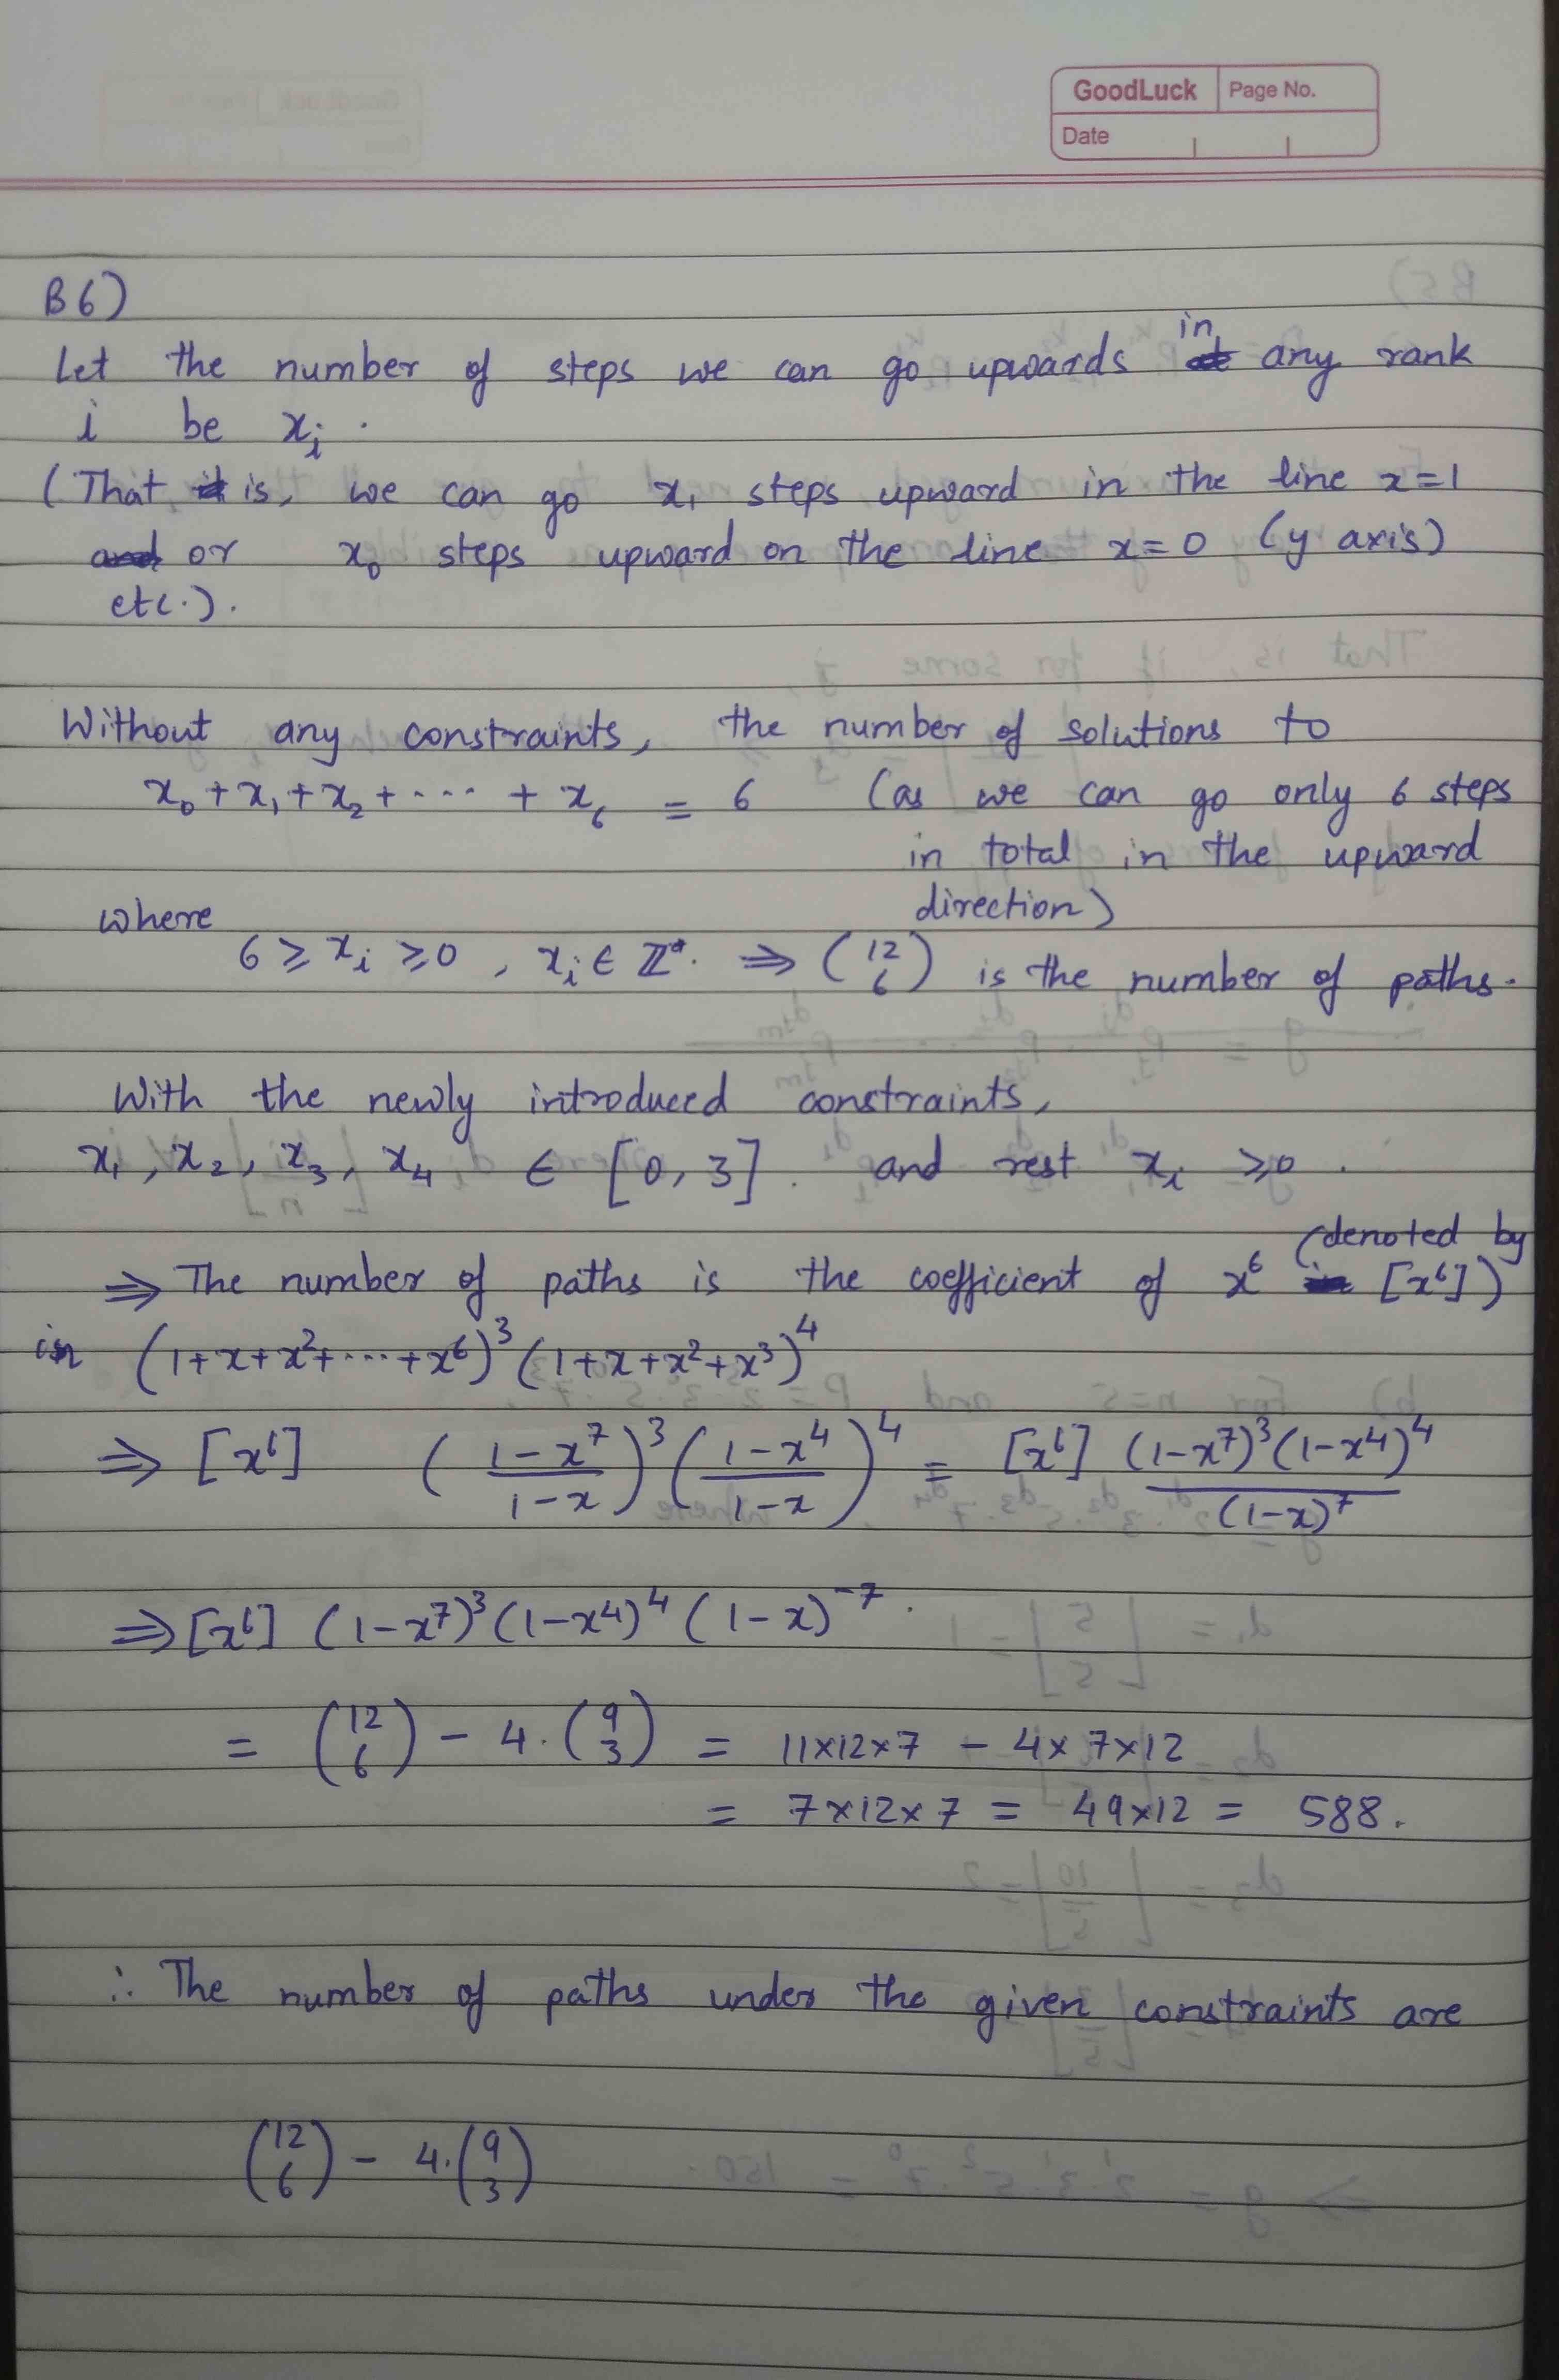 GoodLuck Page No.
Date
B6)
Let the number of steps we can go upwards in any rank
i be xᵢ .
(That is, we can go x₁ steps upward in the line x=1
or x₀ steps upward on the line x=0 (y axis)
etc.).
Without any constraints, the number of solutions to
x₀+x₁+x₂+ ··· + x₆ = 6 (as we can go only 6 steps
in total in the upward
direction)
where
6 ≥ xᵢ ≥0 , xᵢ ∈ ℤ. ⇒ (12 6) is the number of paths.
With the newly introduced constraints,
x₁, x₂, x₃, x₄ ∈ [0, 3]. and rest xᵢ ≥0 .
⇒ The number of paths is the coefficient of x⁶ (denoted by [x⁶])
in (1+x+x²+···+x⁶)³(1+x+x²+x³)⁴
⇒ [x⁶] ((1-x⁷)/(1-x))³((1-x⁴)/(1-x))⁴ = [x⁶] (1-x⁷)³(1-x⁴)⁴/(1-x)⁷
⇒ [x⁶] (1-x⁷)³(1-x⁴)⁴(1-x)⁻⁷.
= (12 6) - 4.(9 3) = 11×12×7 - 4×7×12
= 7×12×7 = 49×12 = 588.
∴ The number of paths under the given constraints are
(12 6) - 4.(9 3)